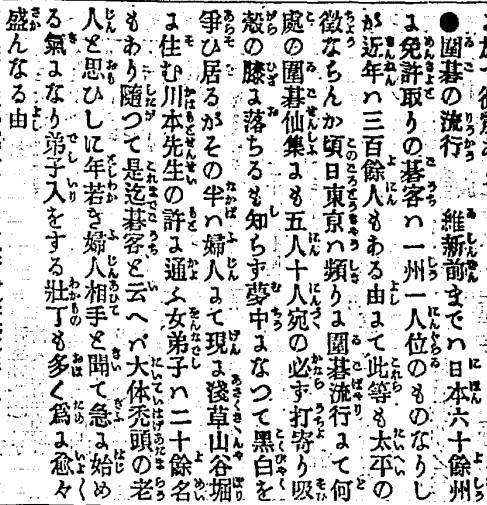 ●圍碁の流行　維新前までハ日本六十餘州
に免許取りの碁客ハ一州一人位のものなりし
が近年ハ三百餘人もある由にて此等も太平の
徴ならんか頃日東京ハ頻りに圍碁流行にて何
處の圍碁仙集にも五人十人宛の必ず打寄り吸
殻の膝に落ちるも知らず夢中になつて黑白を
爭ひ居るがその半ハ婦人にて現に淺草山谷堀
に住む川本先生の許に通ふ女弟子ハ二十餘名
もあり隨つて是迄碁客と云へバ大体禿頭の老
人と思ひしに年若き婦人相手と聞て急に始め
る氣になり弟子入をする壯丁も多く爲に愈々
盛んなる由